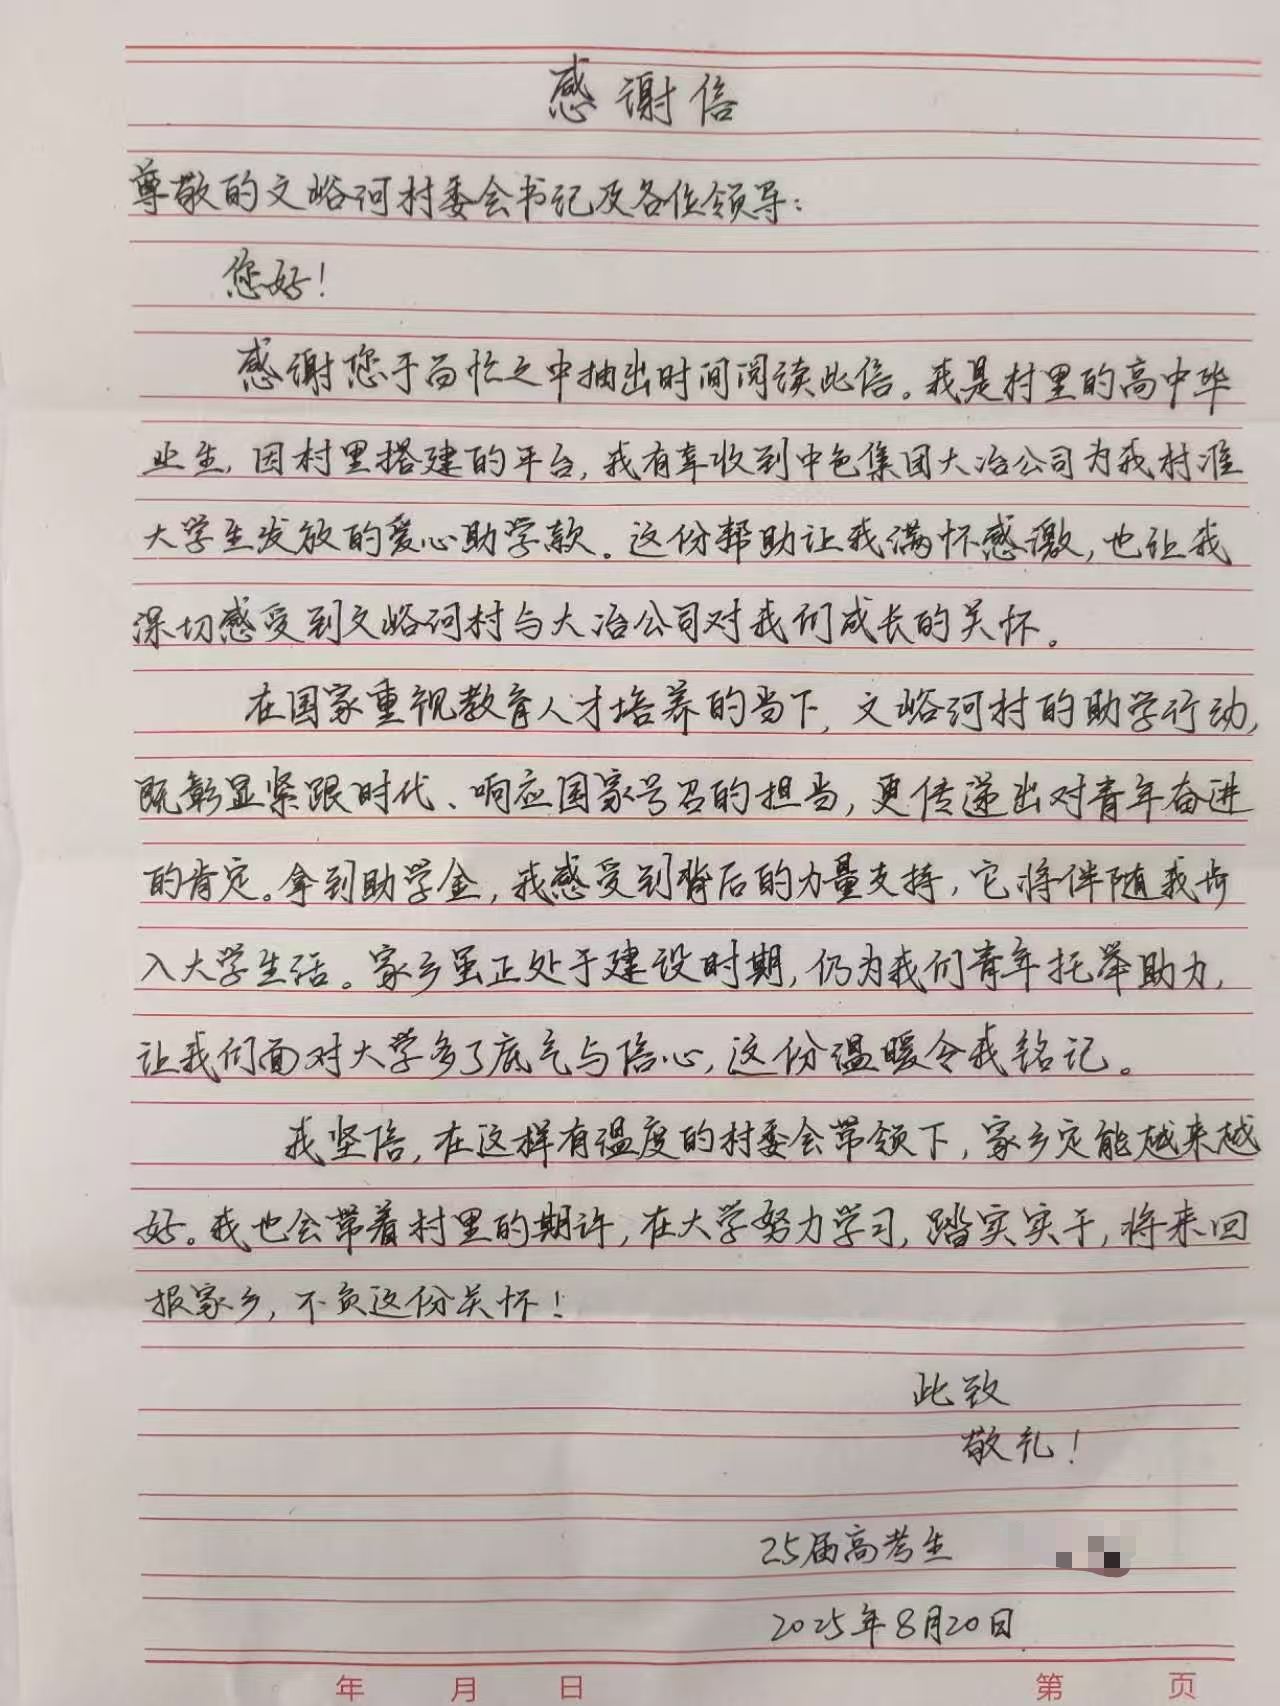 感谢信
尊敬的文峪河村委会书记及各位领导：
您好！
感谢您于百忙之中抽出时间阅读此信。我是村里的高中毕
业生，因村里搭建的平台，我有幸收到中色集团大冶公司为我村准
大学生发放的爱心助学款。这份帮助让我满怀感激，也让我
深切感受到文峪河村与大冶公司对我们成长的关怀。
在国家重视教育人才培养的当下，文峪河村的助学行动，
既彰显紧跟时代、响应国家号召的担当，更传递出对青年奋进
的肯定。拿到助学金，我感受到背后的力量支持，它将伴随我步
入大学生活。家乡虽正处于建设时期，仍为我们青年托举助力，
让我们面对大学多了底气与信心，这份温暖令我铭记。
我坚信，在这样有温度的村委会带领下，家乡定能越来越
好。我也会带着村里的期许，在大学努力学习，踏实实干，将来回
报家乡，不负这份关怀！
此致
敬礼！
25届高考生
2025年8月20日
年 月 日 第 页